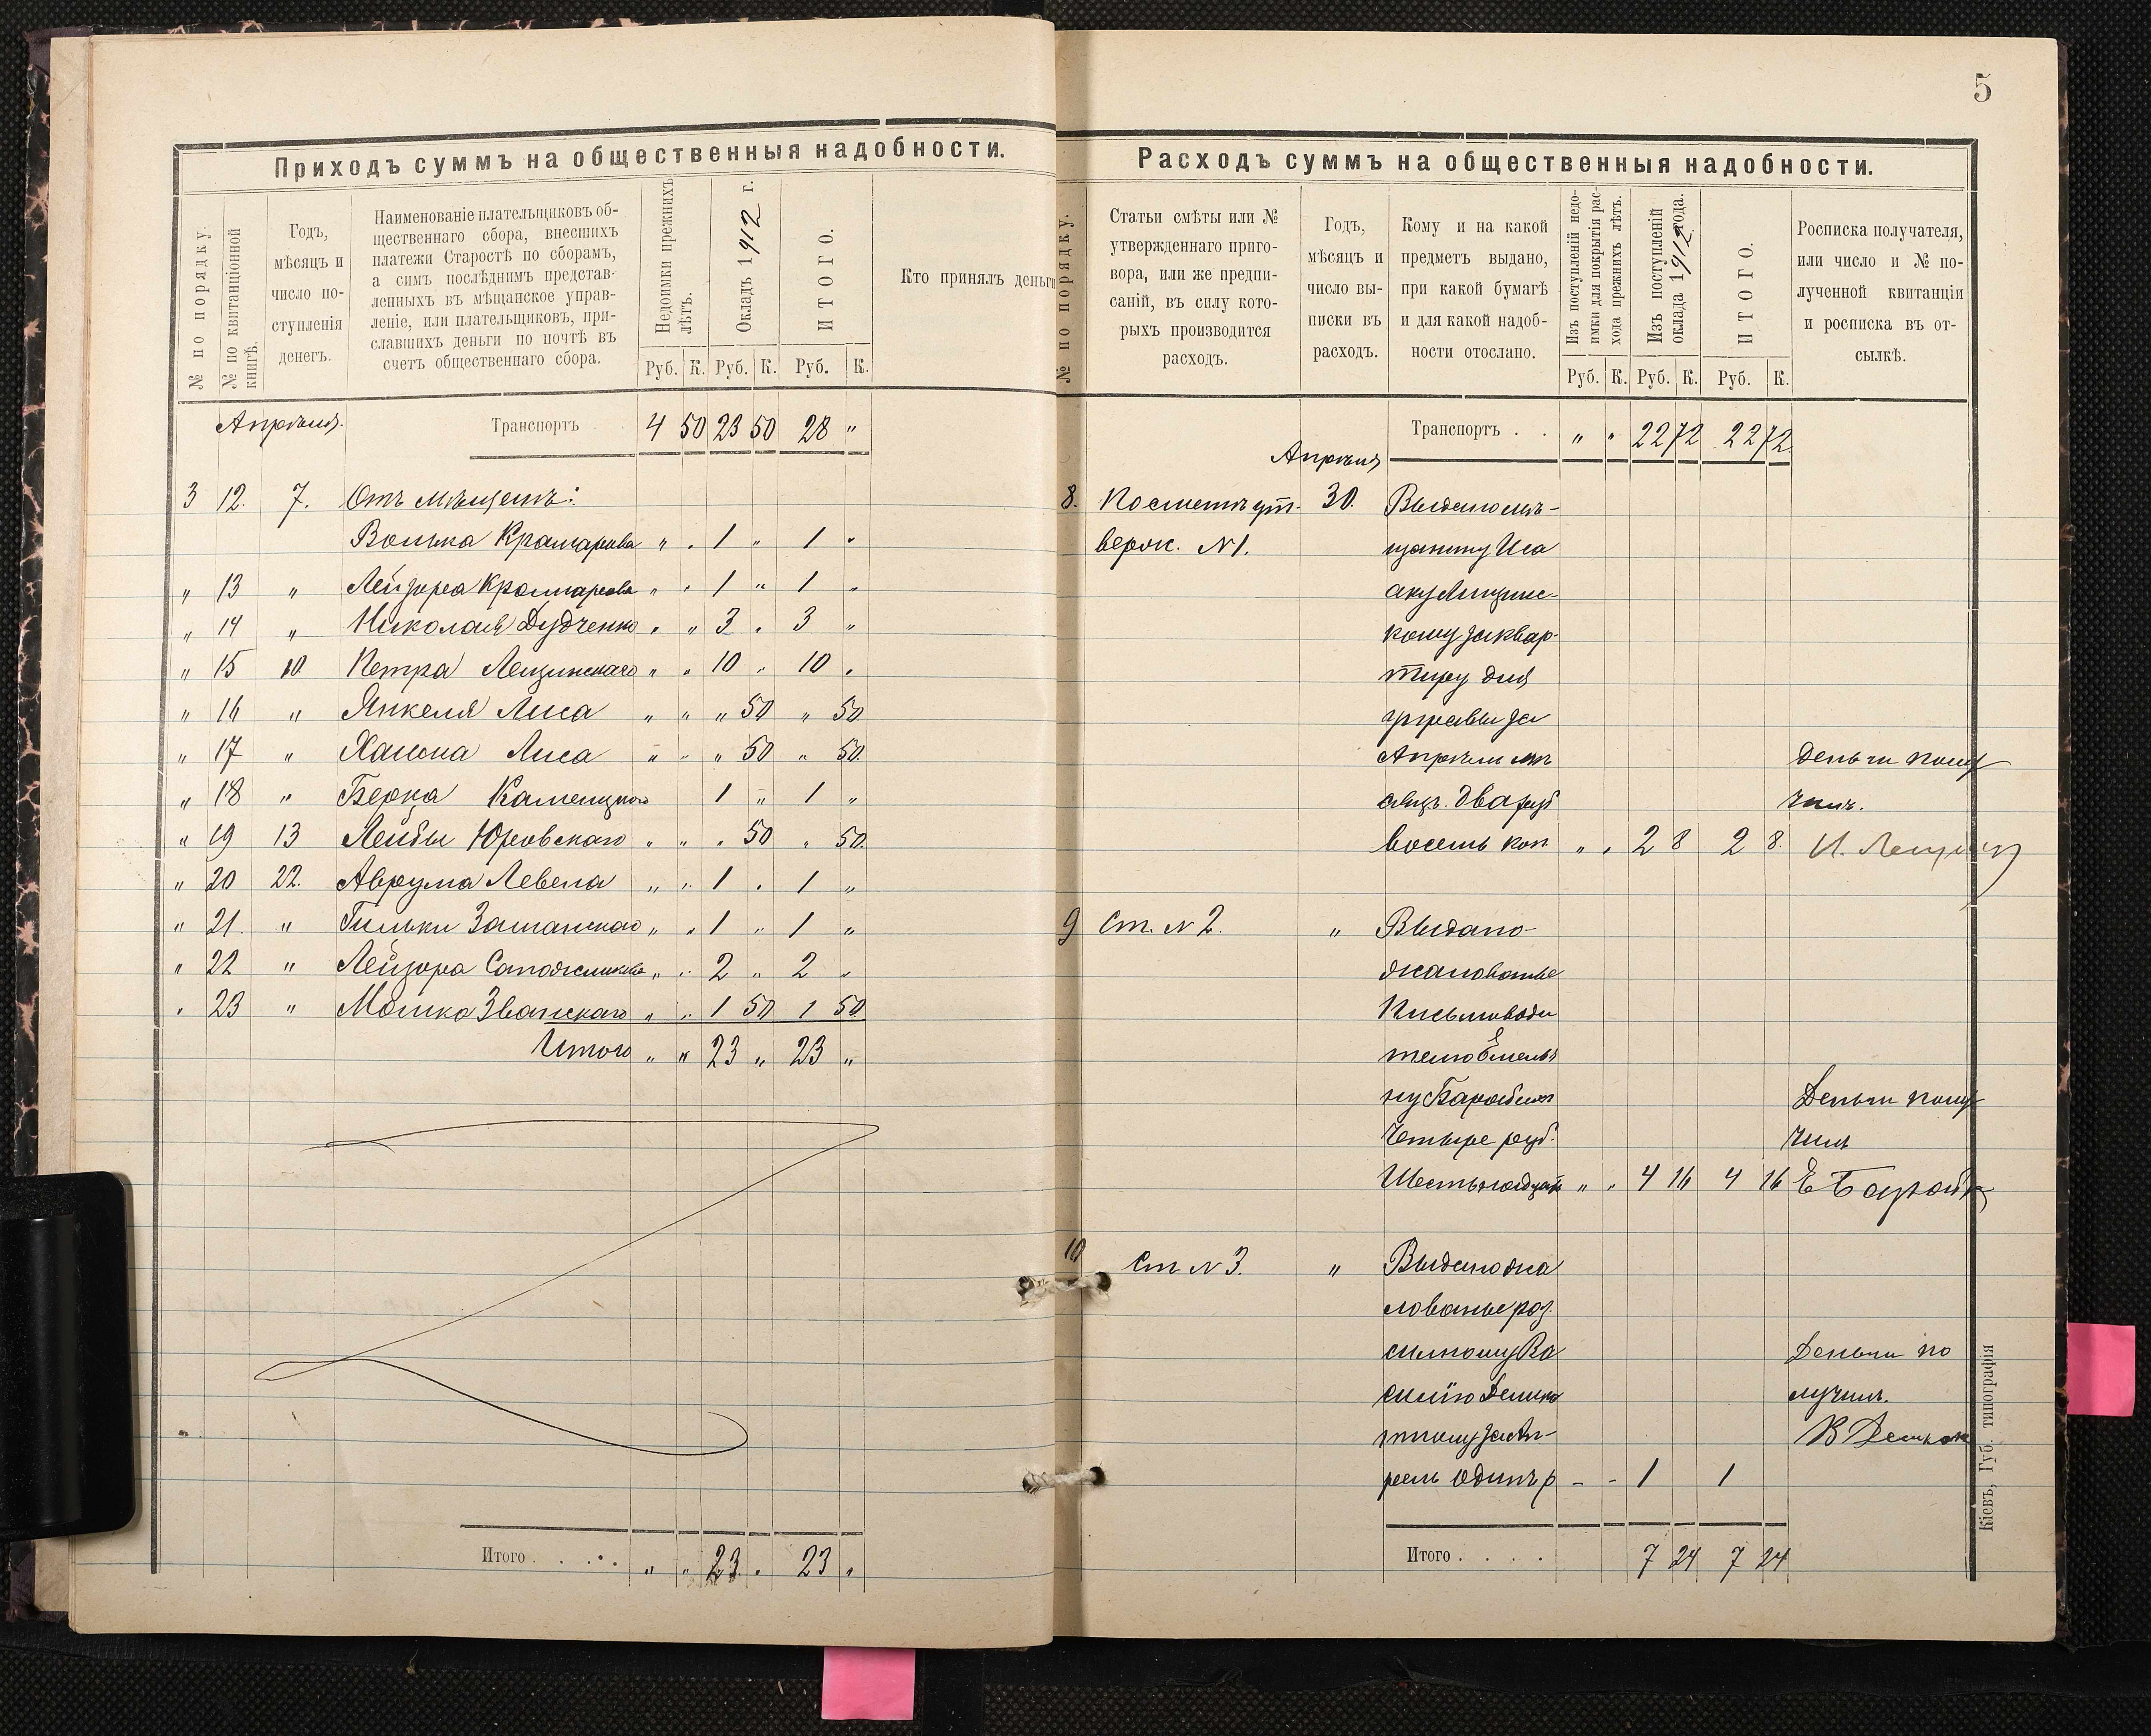 5
Приходъ суммъ на общественныя надобности.
№ по порядку.
№ по квитанціонной книгѣ.
Годъ,
мѣсяцъ и
число по-
ступленія
денегъ.
Наименованіе плательщиковъ об-
щественнаго сбора, внесшихъ
платежи Старостѣ по сборамъ,
а симъ послѣднимъ представ-
ленныхъ въ мѣщанское управ-
леніе, или плательщиковъ, при-
славшихъ деньги по почтѣ въ
счетъ общественнаго сбора.
Недоимки прежнихъ
лѣтъ.
Окладъ 1912 г.
ИТОГО.
Кто принялъ деньги
Руб. К. Руб. К. Руб. К.
Апрѣля. Транспортъ 4 50 23 50 28 "
3 12. 7. Отъ мѣщанъ:
Волька Крамарова " " 1 " 1 "
" 13 " Лейзора Крамарова " " 1 " 1 "
" 14 " Николая Дудченко " " 3 " 3 "
" 15 10 Петра Лещинскаго " " 10 " 10 "
" 16 " Янкеля Лиса " " " 50 " 50
" 17 " Хаима Лиса " " " 50 " 50.
" 18 " Берка Каменецкаго 1 " 1 "
" 19 13 Лейбы Юровскаго " " " 50 " 50.
" 20 22. Аврума Левена " " 1 " 1 "
" 21. " Гильки Заманскаго " " 1 " 1 "
" 22 " Лейзора Сапожникова " " 2 " 2 "
" 23 " Мошка Званскаго " " 1 50 1 50
Итого " " 23 " 23 "
Итого . . . . " " 23. " 23 "
Расходъ суммъ на общественныя надобности.
№ по порядку.
Статьи смѣты или №
утвержденнаго приго-
вора, или же предпи-
саній, въ силу кото-
рыхъ производится
расходъ.
Годъ,
мѣсяцъ и
число вы-
писки въ
расходъ.
Кому и на какой
предметъ выдано,
при какой бумагѣ
и для какой надоб-
ности отослано.
Изъ поступленій недо-
имки для покрытія рас-
хода прежнихъ лѣтъ.
Изъ поступленій
оклада 1912 года.
ИТОГО.
Росписка получателя,
или число и № по-
лученной квитанціи
и росписка въ от-
сылкѣ.
Руб. К. Руб. К. Руб. К.
Транспортъ . . " " 22 72 22 72.
Апрѣля
8. По смѣтѣ ут- 30. Выдано мѣ-
верж. №1. щанину Иса
аку Лещинс-
кому за квар-
тиру для
управы за
Апрѣль мѣ Деньги полу
сяцъ. два руб чилъ.
восемь коп " " 2 8 2 8.
9 Ст. №2. " Выдано-
жалованье
Письмоводи
телю Емелья
ну Барабаш Деньги полу
Четыре руб. чилъ
Шестьнадцать " " 4 16 4 16
10 Ст №3. " Выдано жа
лованье роз-
сыльному Ва Деньги по
силію лучилъ.
за Ап-
рель Одинъ р - - 1 1
Итого . . . . 7 24 7 24
Кіевъ, Губ. типографія